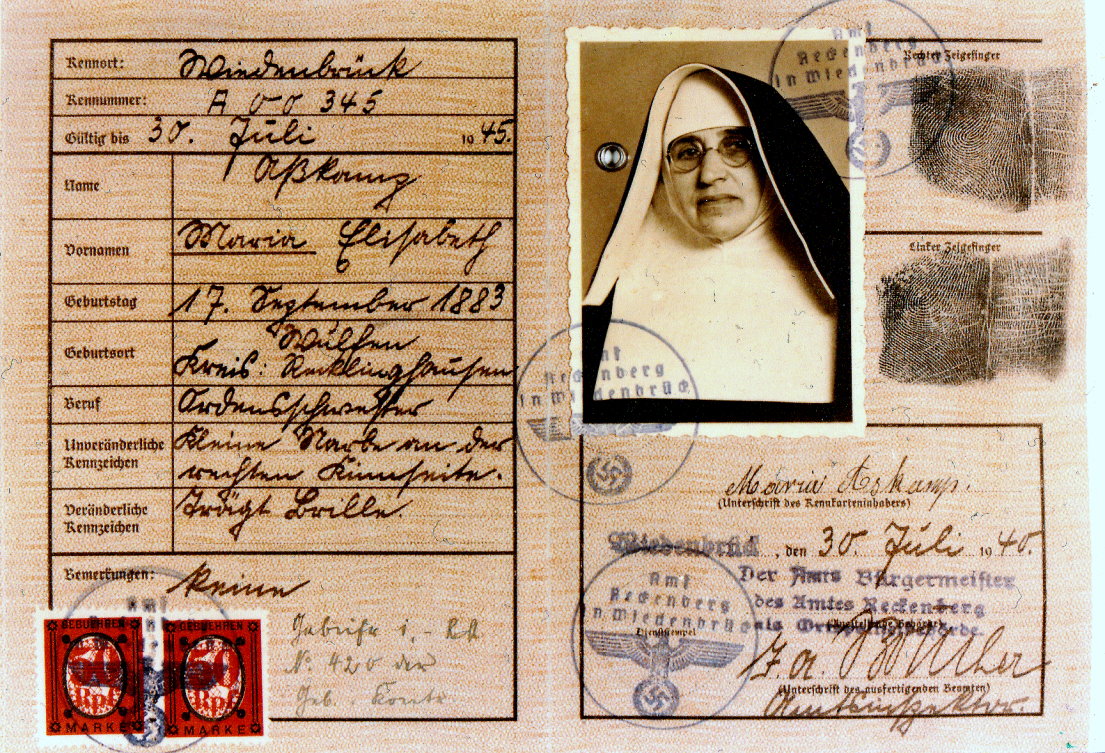 Kennort: Wiedenbrück
Kennummer: A 00 345
Gültig bis 30. Juli 1945.
Name Aßkamp
Vornamen Maria Elisabeth
Geburtstag 17. September 1883
Geburtsort Wulfen
Kreis: Recklinghausen
Beruf Ordensschwester
Unveränderliche Kennzeichen Kleine Narbe an der
rechten Kinnseite.
Veränderliche Kennzeichen Trägt Brille.
Bemerkungen: keine
GEBÜHREN GEBÜHREN
50 Rpf 50 Rpf
MARKE MARKE
Gebühr 1,- RM
No 420 der
Geb.
Amt
Reckenberg
in Wiedenbrück
Rechter Zeigefinger
Linker Zeigefinger
Amt
Reckenberg
in Wiedenbrück
Maria Askamp.
(Unterschrift des Kennkarteninhabers)
Wiedenbrück, den 30. Juli 1940.
Der Amts Bürgermeister
des Amtes Reckenberg
als Ortspolizeibehörde.
(Ausstellende Behörde)
Amt
Reckenberg
in Wiedenbrück
Dienststempel
J. A.
(Unterschrift des ausfertigenden Beamten)
Amtsinspektor.